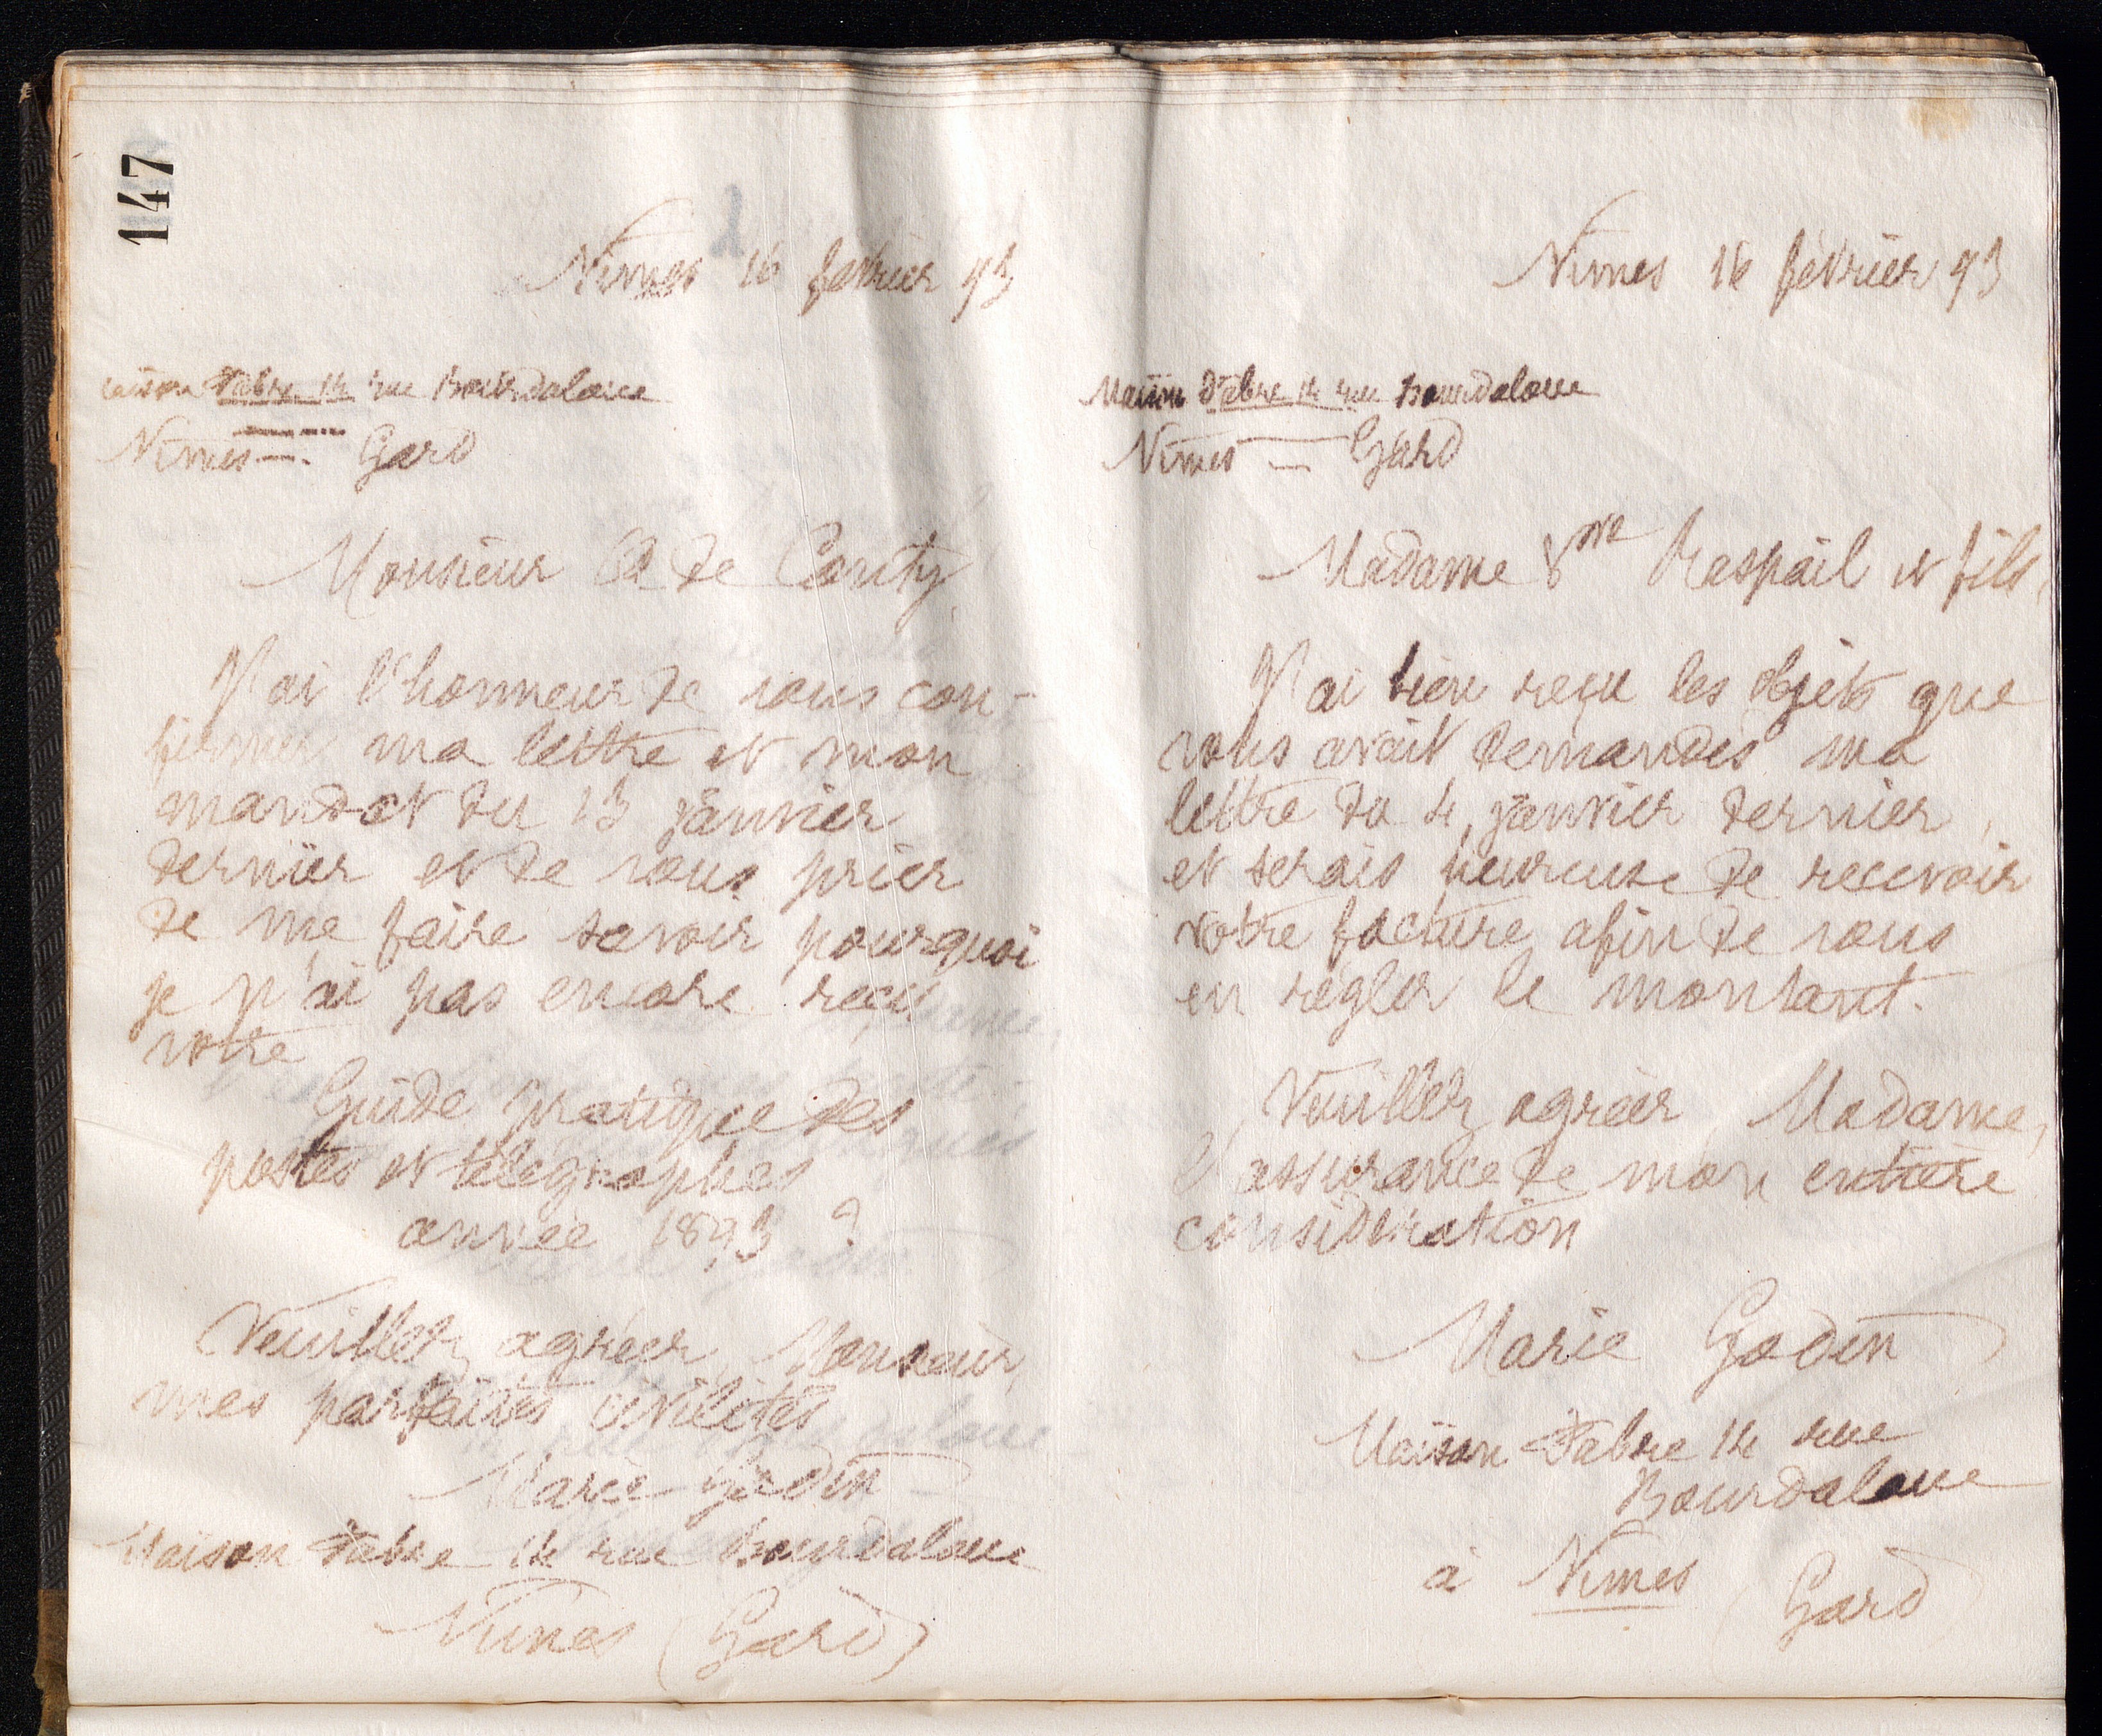 147
Nîmes 16 février 93
Maison Fabre 14 rue Bourdaloue
Nîmes — Gard
Monsieur A de Conty
J'ai l'honneur de vous con-
firmer ma lettre et mon
mandat du 13 janvier
dernier et de vous prier
de me faire savoir pourquoi
je n'ai pas encore reçu
votre
Guide pratique des
postes et télégraphes
année 1893 ?
Veuillez agréer, Monsieur,
mes parfaites civilités
Marie Godin
Maison Fabre 14 rue Bourdaloue
Nîmes (Gard)
Nîmes 16 février 93
Maison Fabre 14 rue Bourdaloue
Nîmes — Gard
Madame Vve Raspail et fils,
J'ai bien reçu les objets que
vous avait demandés ma
lettre du 4 janvier dernier,
et serais heureuse de recevoir
votre facture afin de vous
en régler le montant.
Veuillez agréer, Madame,
l'assurance de mon entière
considération
Marie Godin
Maison Fabre 14 rue
Bourdaloue
à Nîmes (Gard)